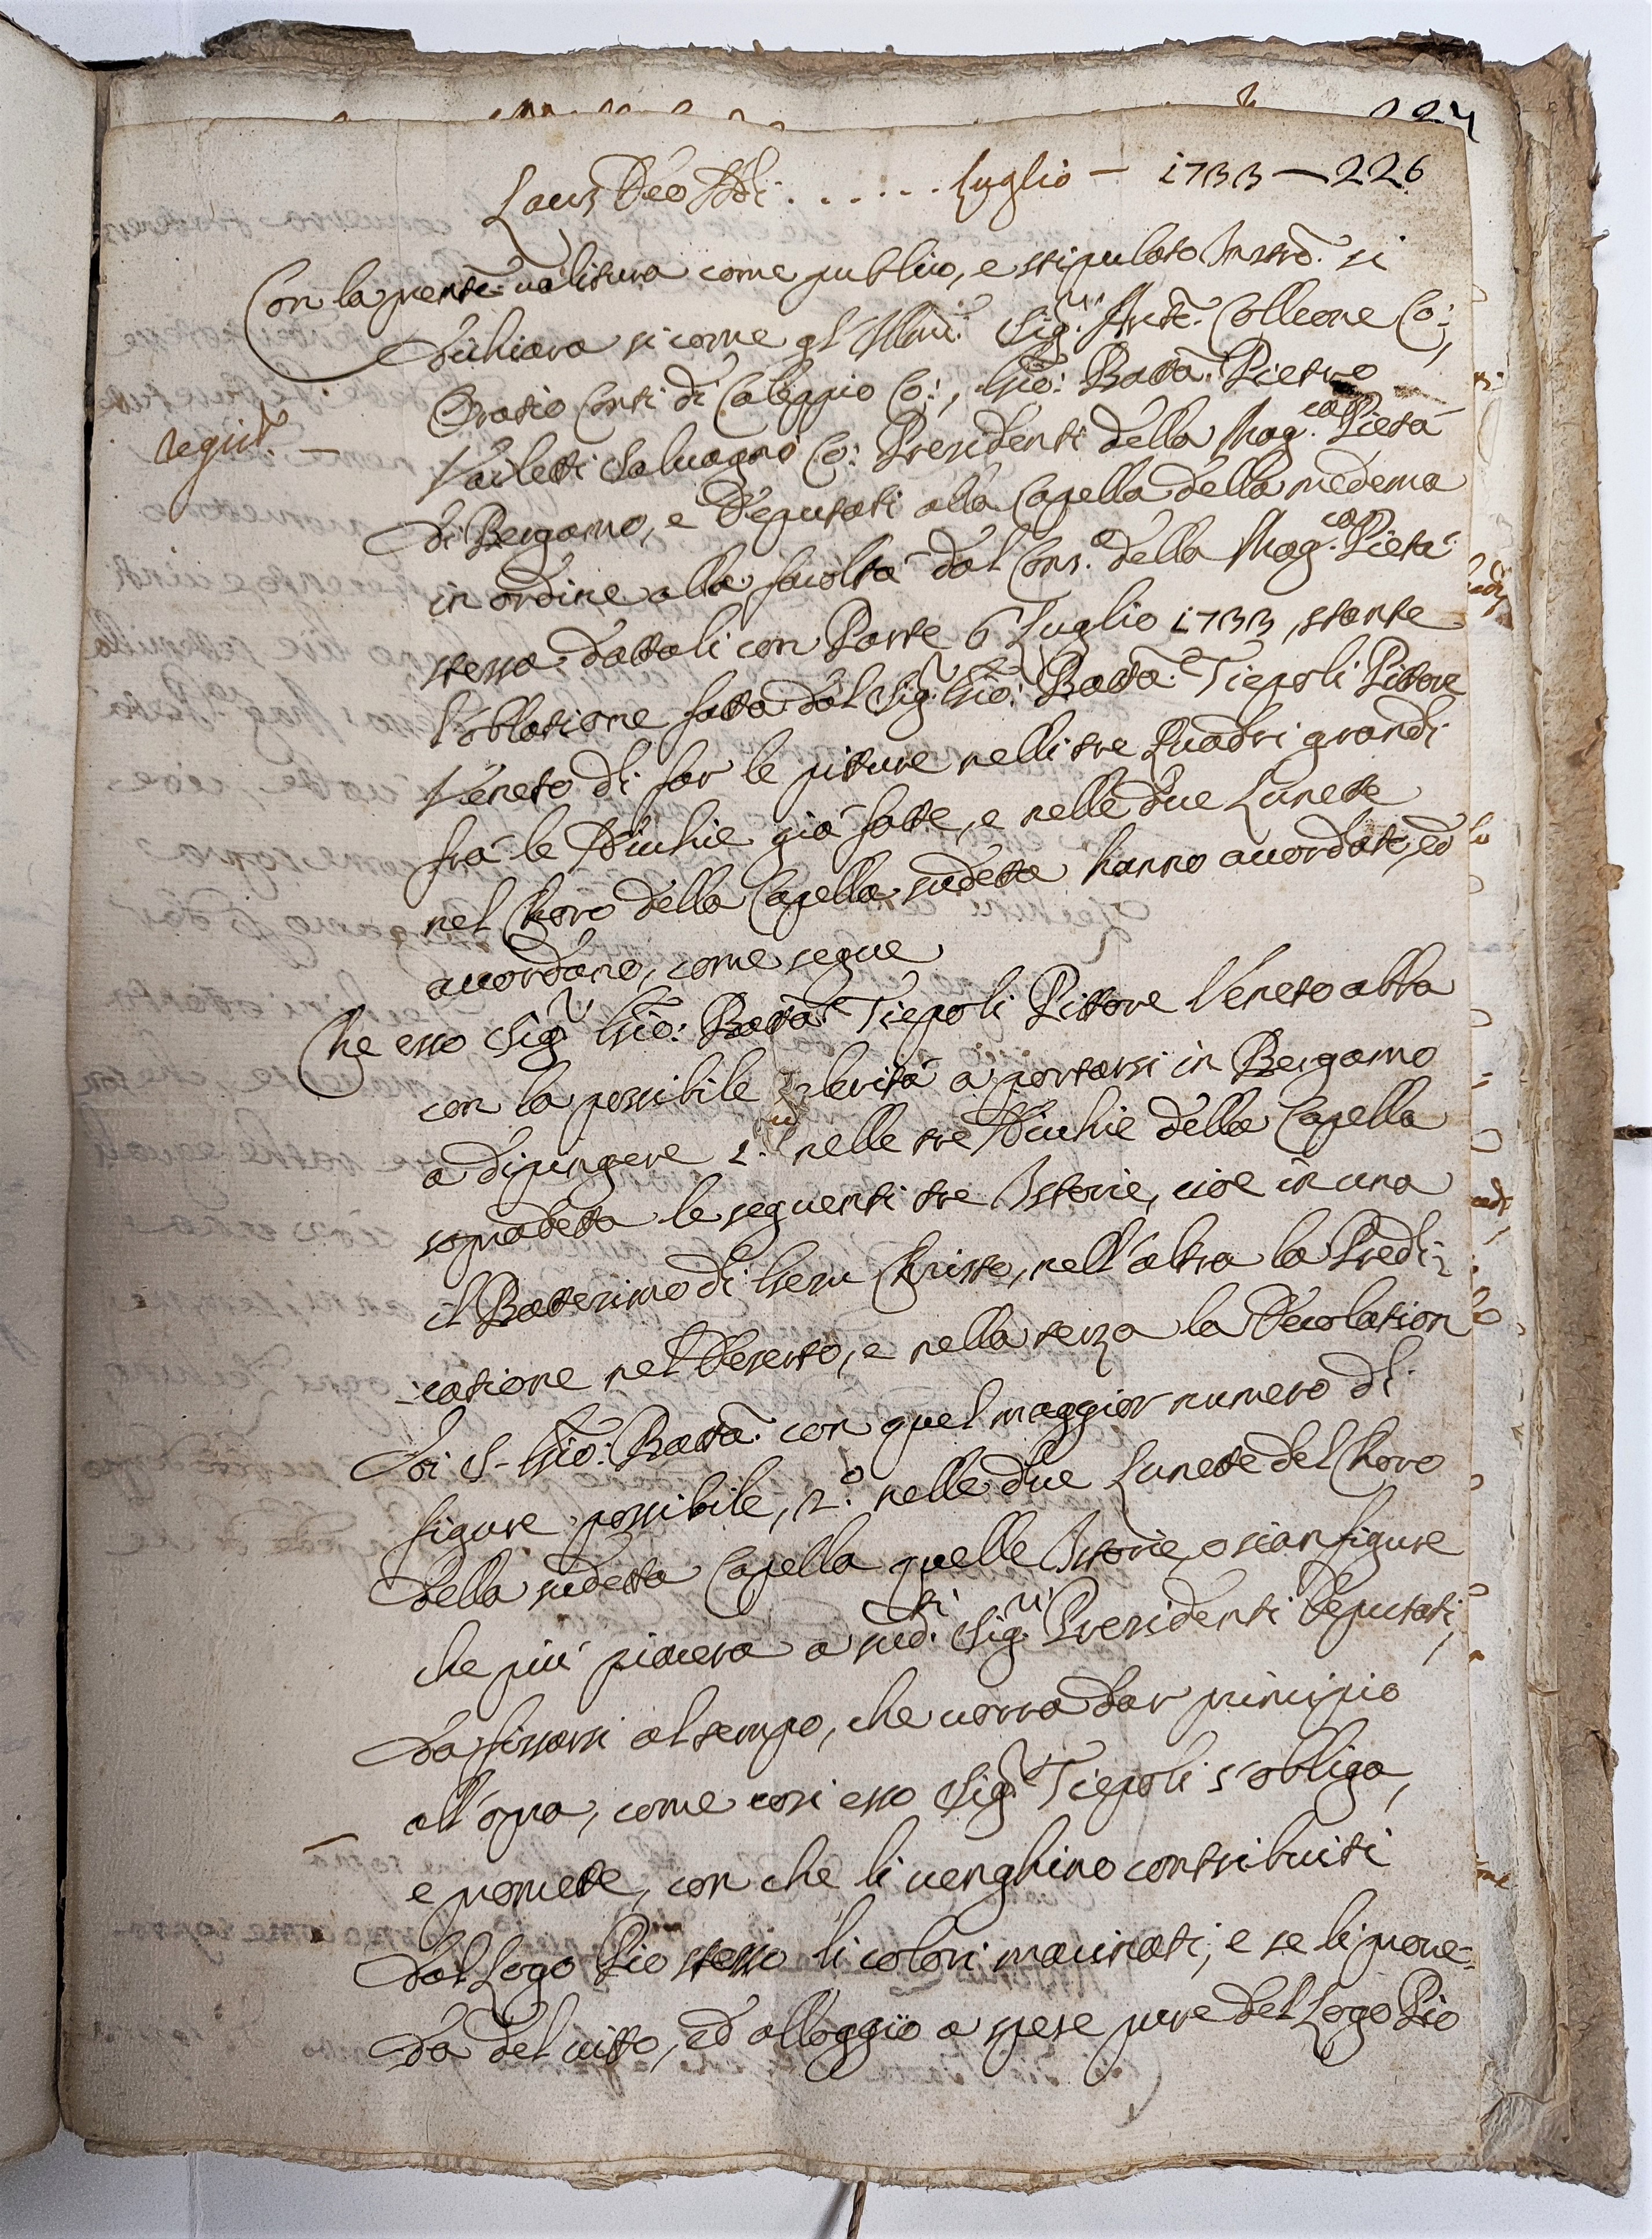 227
Laus Deo Adi . . . . . . Luglio — 1733 — 226
Con la presente ualitura come publico, e stipulato Instro. si
dichiara si come gl'Illmi. Sigri. Ante. Colleone Co:,
Oratio Conti di Caleppio Co:, Gio: Batta. Pietro
Vailetti Saluagno Co: Presidenti della Mag.ca Pietà
regist. —
di Bergamo, e Deputati alla Capella della medema
in ordine alla facoltà dal Cons.o della Mag.ca Pietà
stessa dattali con Parte 6 Luglio 1733, stante
l'oblatione fatta dal Sig.r Gio: Batta. Tiepoli Pittore
Veneto di far le piture nelli tre Quadri grandi
frà le Nichie già fatte, e nelle due Lunette
nel Choro della Capella sudetta hanno acordato, ed
acordano, come segue
Che esso Sig.r Gio: Batta. Tiepoli Pittore Veneto abbia
con la possibile celerità a portarsi in Bergamo
a dipingere 1.o nelle tre Nichie della Capella
sopradetta le seguenti tre Istorie, cioè in una
il Battesimo di Giesu Christo, nell'altra la Predi-
-catione nel Deserto, e nella terza la Decolation
di S. Gio: Batta. con quel maggior numero di
figure possibile, 2.o nelle due Lunette del Choro
della sudetta Capella quelle Istorie, o sian figure
che più piacerà a sud.ti Sig.ri Presidenti Deputati,
da fissarsi al tempo, che uorrà dar principio
all'opra, come così esso Sig.r Tiepoli s'obliga,
e promette, con che li uenghino contribuiti
dal Logo Pio stesso li colori macinati, e se li proue-
da del uitto, ed alloggio a spese pure del Logo Pio